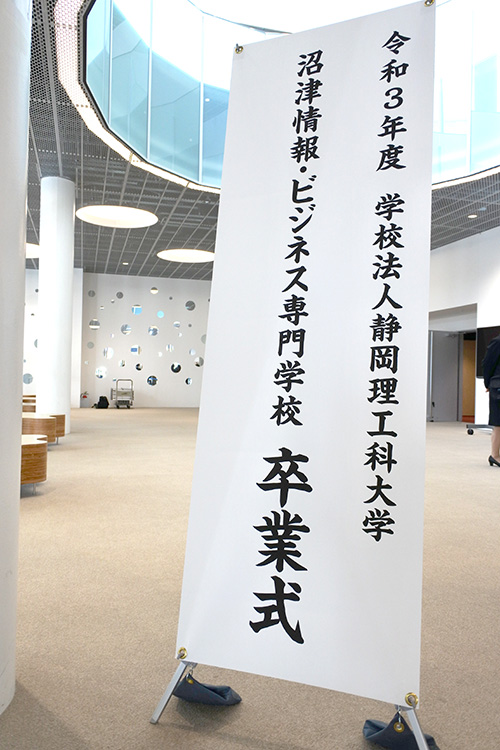 令和3年度　学校法人静岡理工科大学
沼津情報・ビジネス専門学校　卒業式